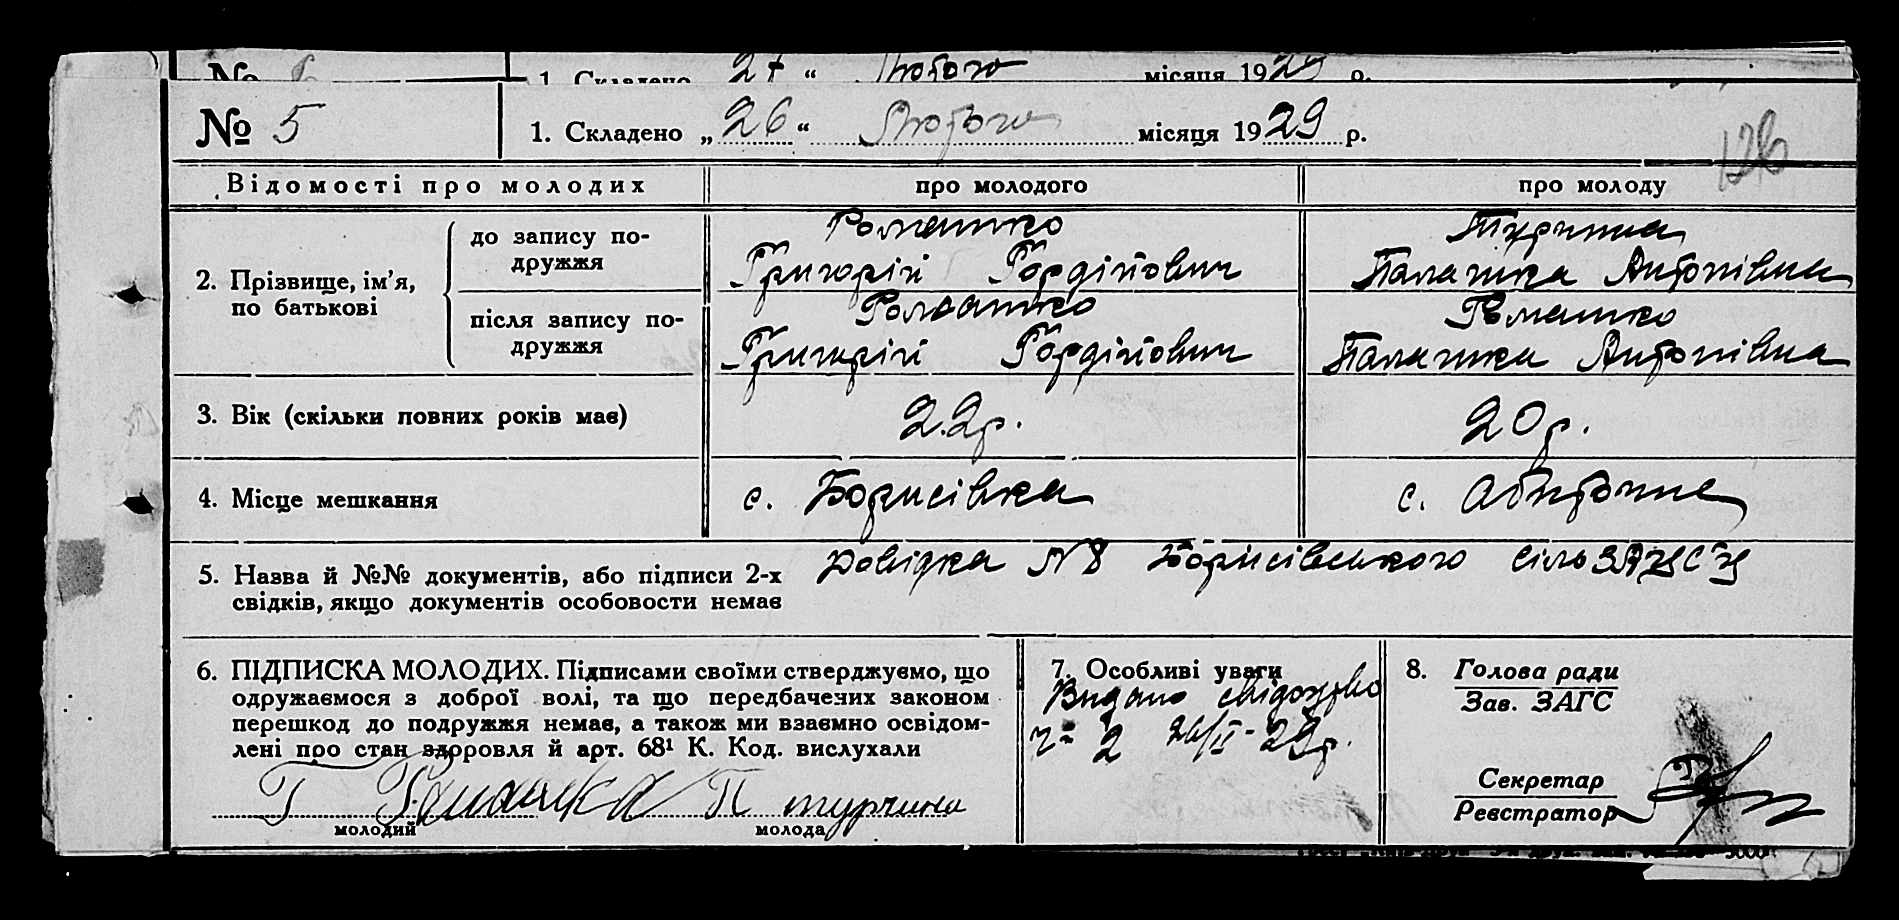 1. Складено 27 “ Лютого місяця 1929 р.
№ 5
1. Складено „ 26 “ Лютого місяця 1929 р.
126
Відомості про молодих
про молодого
про молоду
2. Прізвище, ім’я, по батькові
до запису по-
дружжя
Ромашко
Григорій Гордійович
Турчина
Палажка Антонівна
після запису по-
дружжя
Ромашко
Григорій Гордійович
Ромашко
Палажка Антонівна
3. Вік (скільки повних років має)
22 р.
20 р.
4. Місце мешкання
с. Борисівка
с. Обиточне
5. Назва й №№ документів, або підписи 2-х
свідків, якщо документів особовости немає
Довідка N 8 Борисівського сільЗАГСу
6. ПІДПИСКА МОЛОДИХ. Підписами своїми стверджуємо, що
одружаємося з доброї волі, та що передбачених законом
перешкод до подружжя немає, а також ми взаємно освідом-
лені про стан здоровля й арт. 68¹ К. Код. вислухали
Г П турчина
молодий
молода
7. Особливі уваги
Видано свідоцтво
2 26/II-29р.
8. Голова ради
Зав. ЗАГС
Секретар
Реєстратор